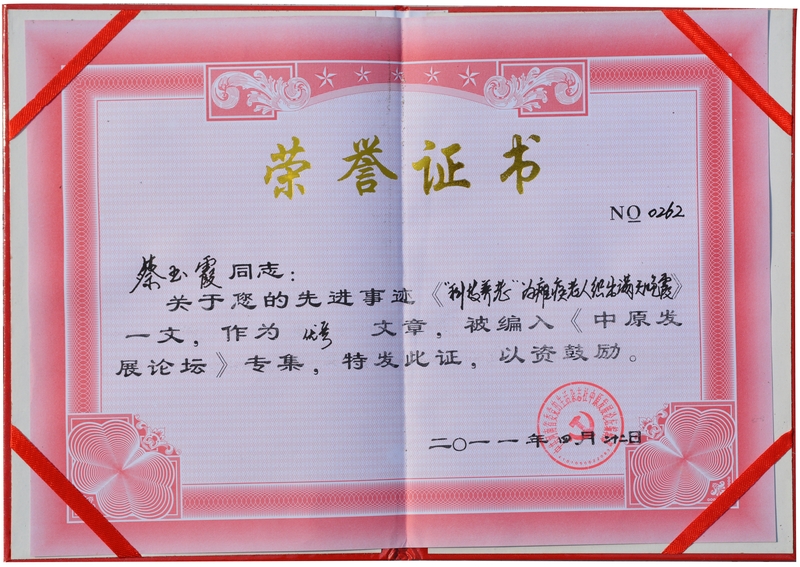 荣誉证书
NO 0262
蔡玉霞同志:
关于您的先进事迹《"科技养老"为瘫痪老人织出满天晚霞》
一文,作为 优秀 文章,被编入《中原发
展论坛》专集,特发此证,以资鼓励。
二〇一一年四月廿二日